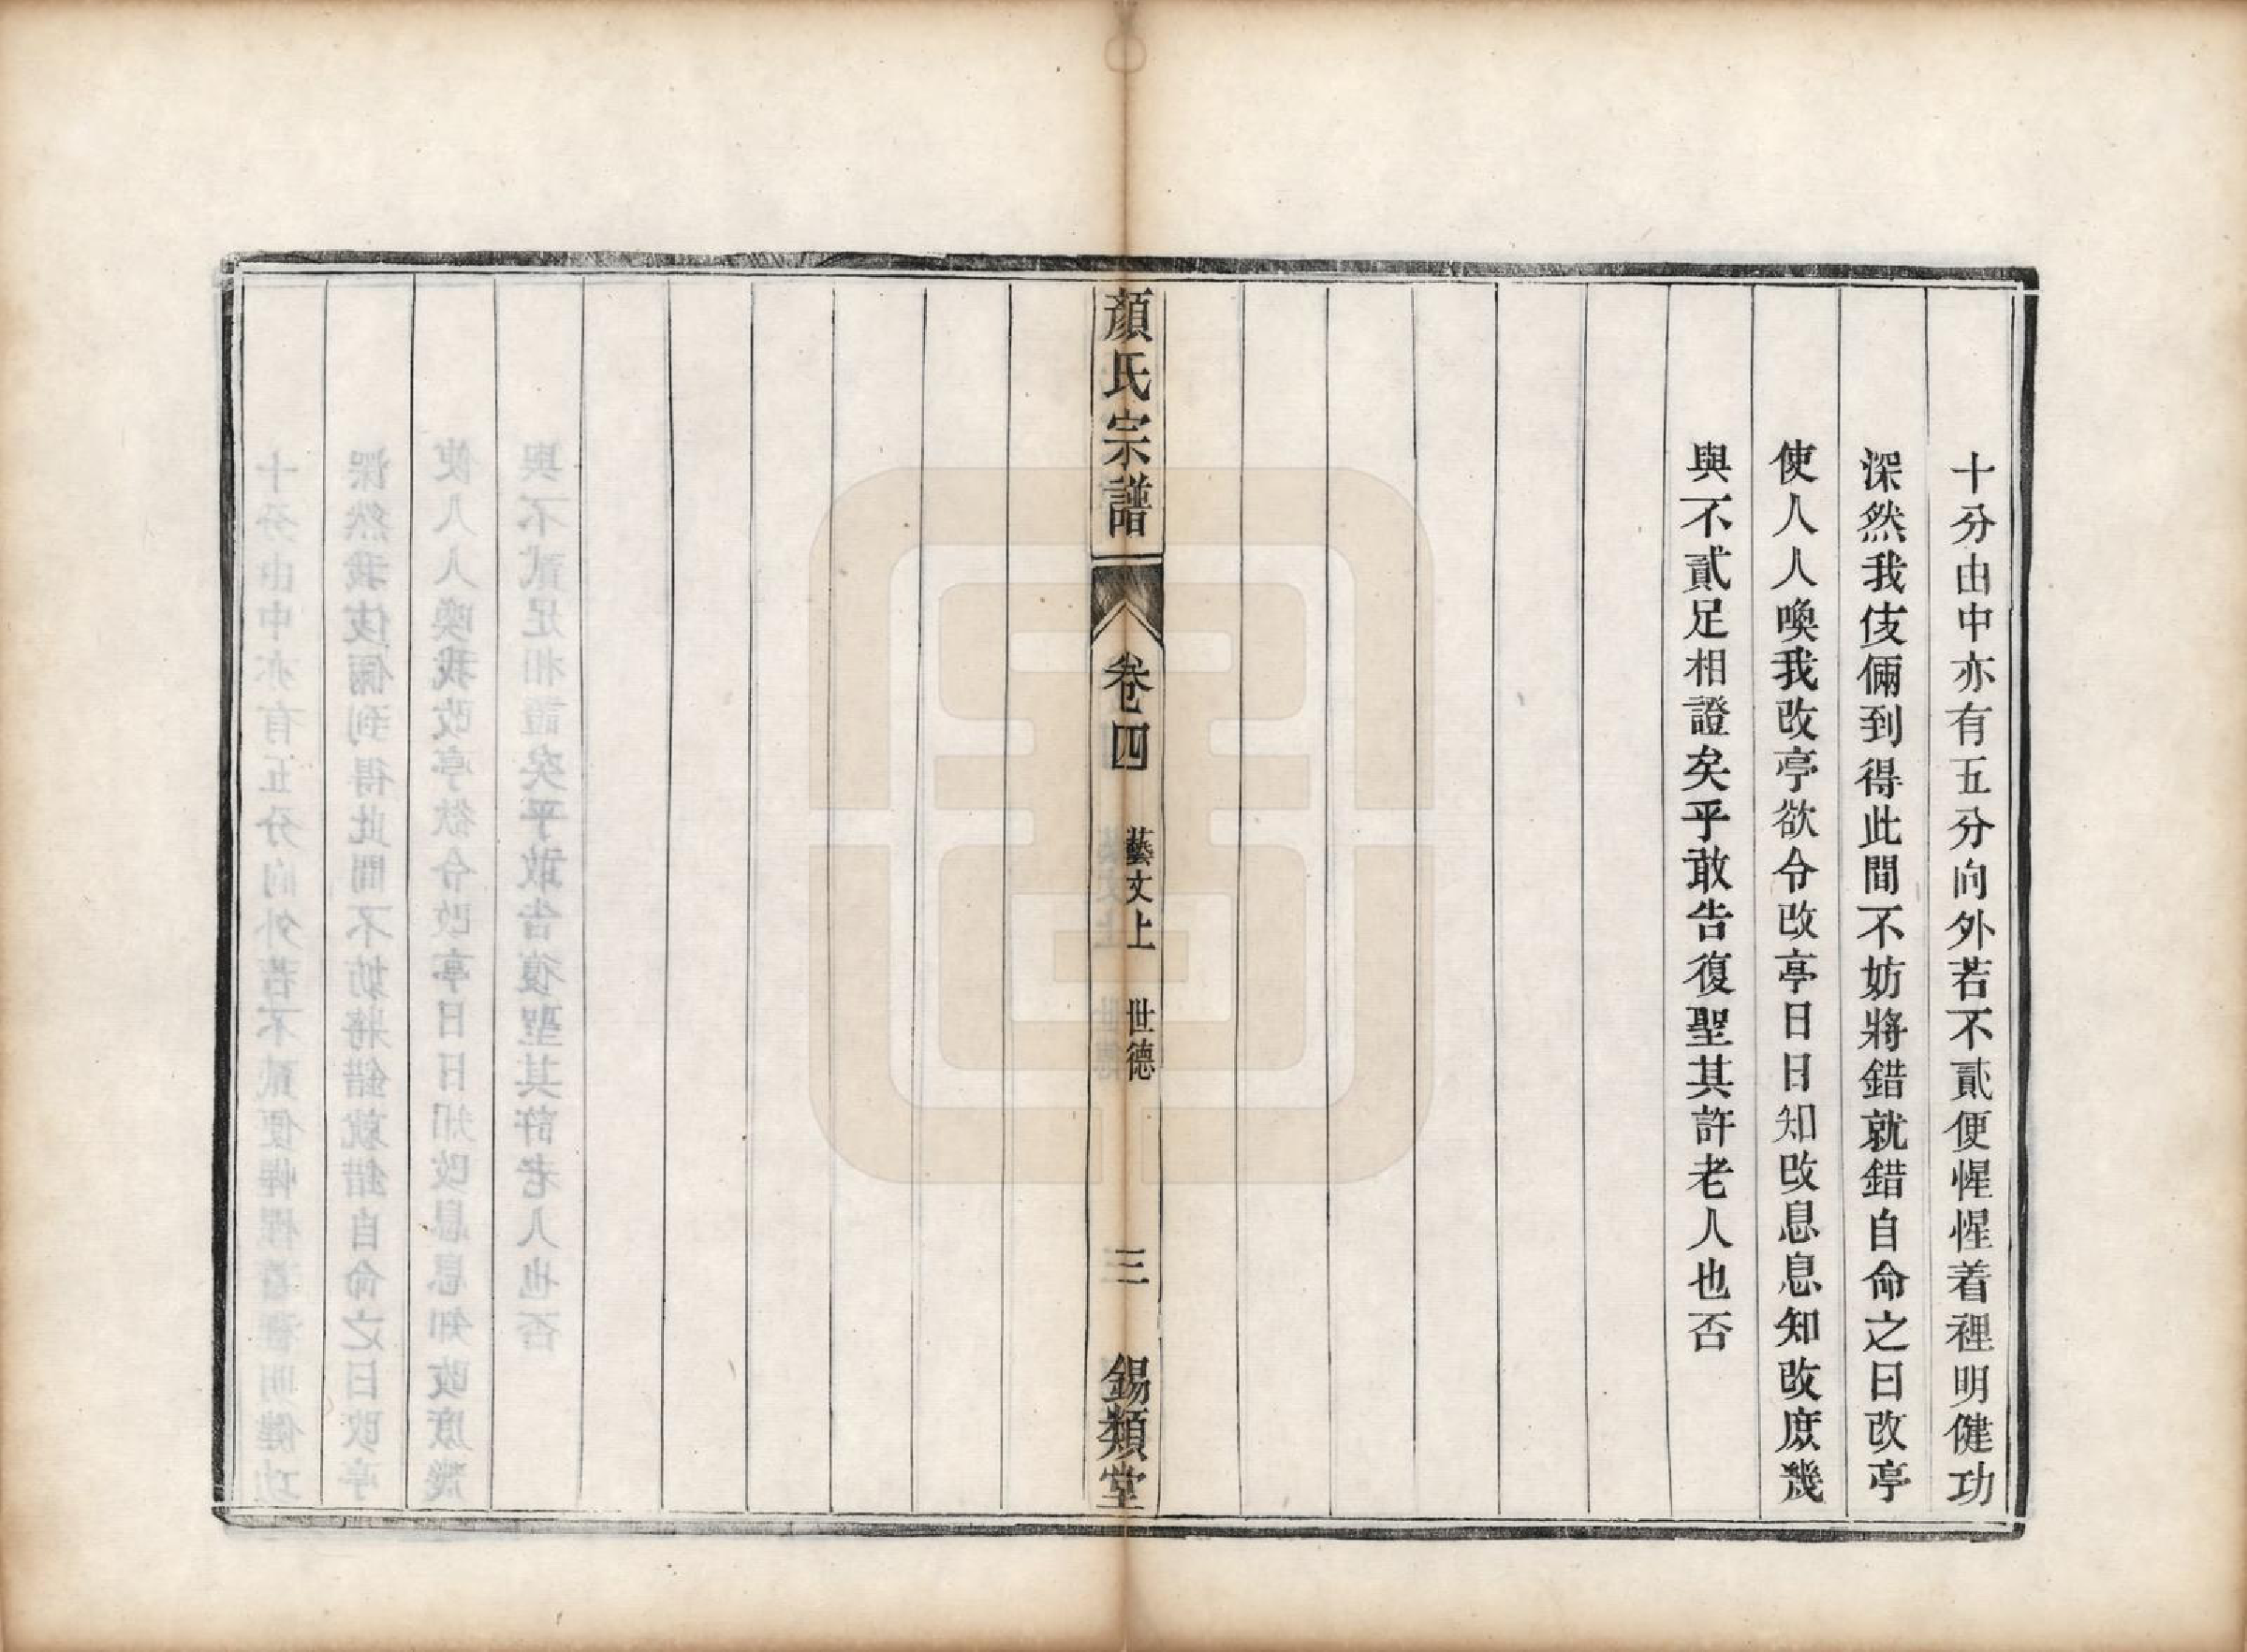 十分由中亦有五分向外若不貳便惺惺着裡明健功
深然我伎倆到得此間不妨將錯就錯自命之曰改亭
使人人喚我改亭欲令改亭日日知改息息知改庶幾
與不貳足相證矣乎敢告復聖其許老人也否
顏氏宗譜
卷四
藝文上
世德
三
錫類堂